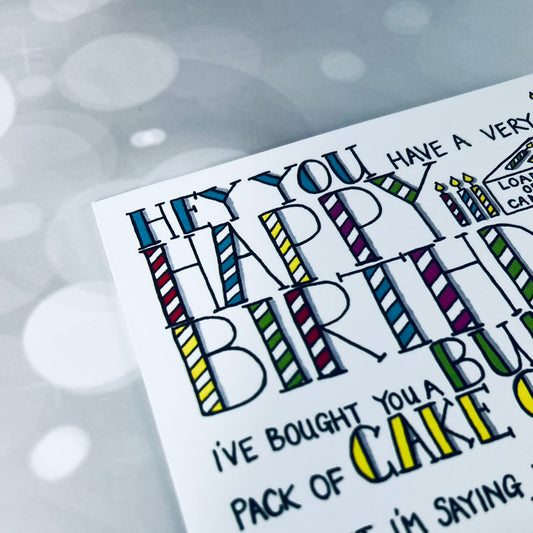 HEY YOU HAVE A VERY
HAPPY
BIRTHD
I'VE BOUGHT YOU A BU
PACK OF CAKE
I'M SAYING